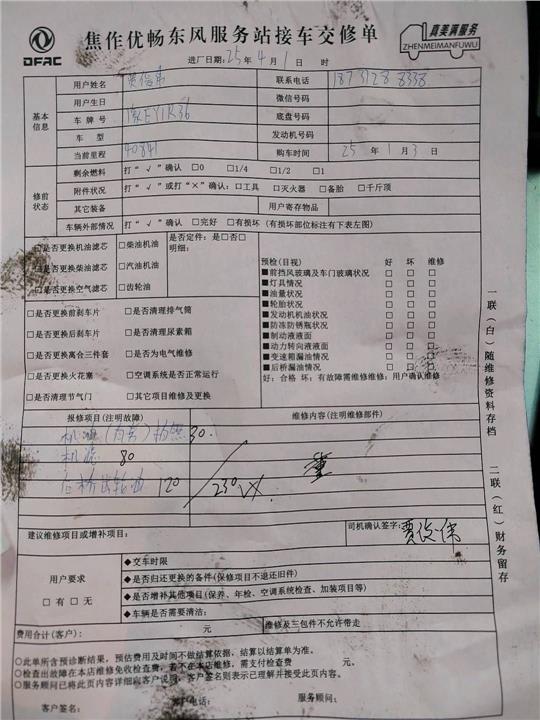 DFAC
焦作优畅东风服务站接车交修单
真美满服务
ZHENMEIMANFUWU
进厂日期: 25年 4月 1日 时
基本信息
用户姓名 贾俊伟 联系电话
用户生日 微信号码
车牌号 底盘号码
车型 发动机号码
当前里程 40841 购车时间 25年 1月 3日
修前状态
剩余燃料 打“√”确认 □0 □1/4 □1/2 □1
附件状况 打“√”或打“×”确认: □工具 □灭火器 □备胎 □千斤顶
其它装备 用户寄存物品
车辆外部情况 打“√”确认 □完好 □有损坏 (有损坏部位标注有下表左图)
□是否更换机油滤芯 □柴油机油
□是否更换柴油滤芯 □汽油机油
□是否更换空气滤芯 □齿轮油
是否定件: 是□否□
明细:
□是否更换前刹车片 □是否清理排气筒
□是否更换后刹车片 □是否清理尿素箱
□是否更换离合三件套 □是否为电气维修
□是否更换火花塞 □空调系统是否正常运行
□是否清理节气门 □其它项目维修及更换
预检(目视) 好 坏 维修
■前挡风玻璃及车门玻璃状况 □ □ □
■灯具情况 □ □ □
■油量状况 □ □ □
■轮胎状况 □ □ □
■发动机机油状况 □ □ □
■防冻防锈瓶状况 □ □ □
■制动液液面 □ □ □
■动力转向液液面 □ □ □
■变速箱漏油情况 □ □ □
■后桥漏油情况 □ □ □
好: 合格 坏: 有故障需维修维修: 用户确认维修
报修项目(注明故障) 维修内容(注明维修部件)
机油 30.
机滤 80
齿轮油 120
230
建议维修项目或增补项目:
司机确认签字: 贾俊伟
用户要求
□有□无
◆交车时限
◆是否归还更换的备件(保修项目不退还旧件)
◆是否增补其他项目(保养、年检、空调系统检查、加装项目等)
◆车辆是否需要清洁:
费用合计(客户): 元 维修及三包件不允许带走
○此单所含预诊断结果, 预估费用及时间不做结算依据, 结算以结算单为准。
○检查出故障在本店维修免收检查费, 若不在本店维修, 需支付检查费 元。
○服务顾问已将此页内容详细向客户说明, 客户签名则表示已理解并接受此页内容。
客户签名: 客户电话: 服务顾问:
一联(白)随维修资料存档
二联(红)财务留存